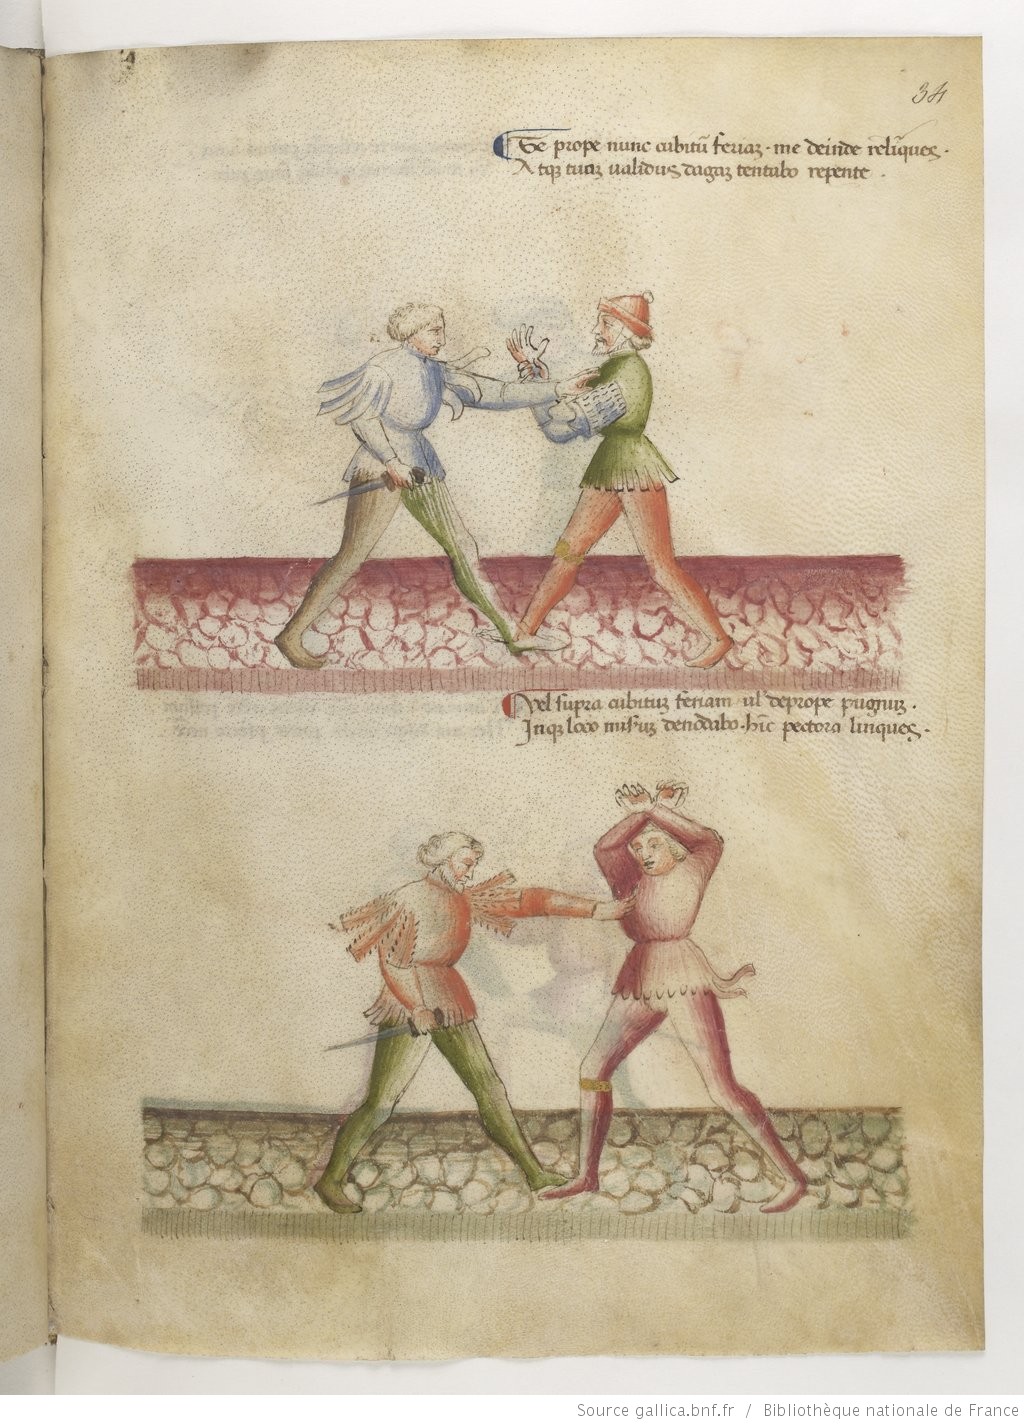 34
Te prope nunc cubitū feriaʒ · me deinde relīques ·
Atqʒ tuaʒ validus dagaʒ tentabo repente ·
Vel supra cubituʒ feriam ul' deprope pugnuʒ ·
Inqʒ loco misuʒ denodabo · hīc pectora linques ·
Source gallica.bnf.fr / Bibliothèque nationale de France